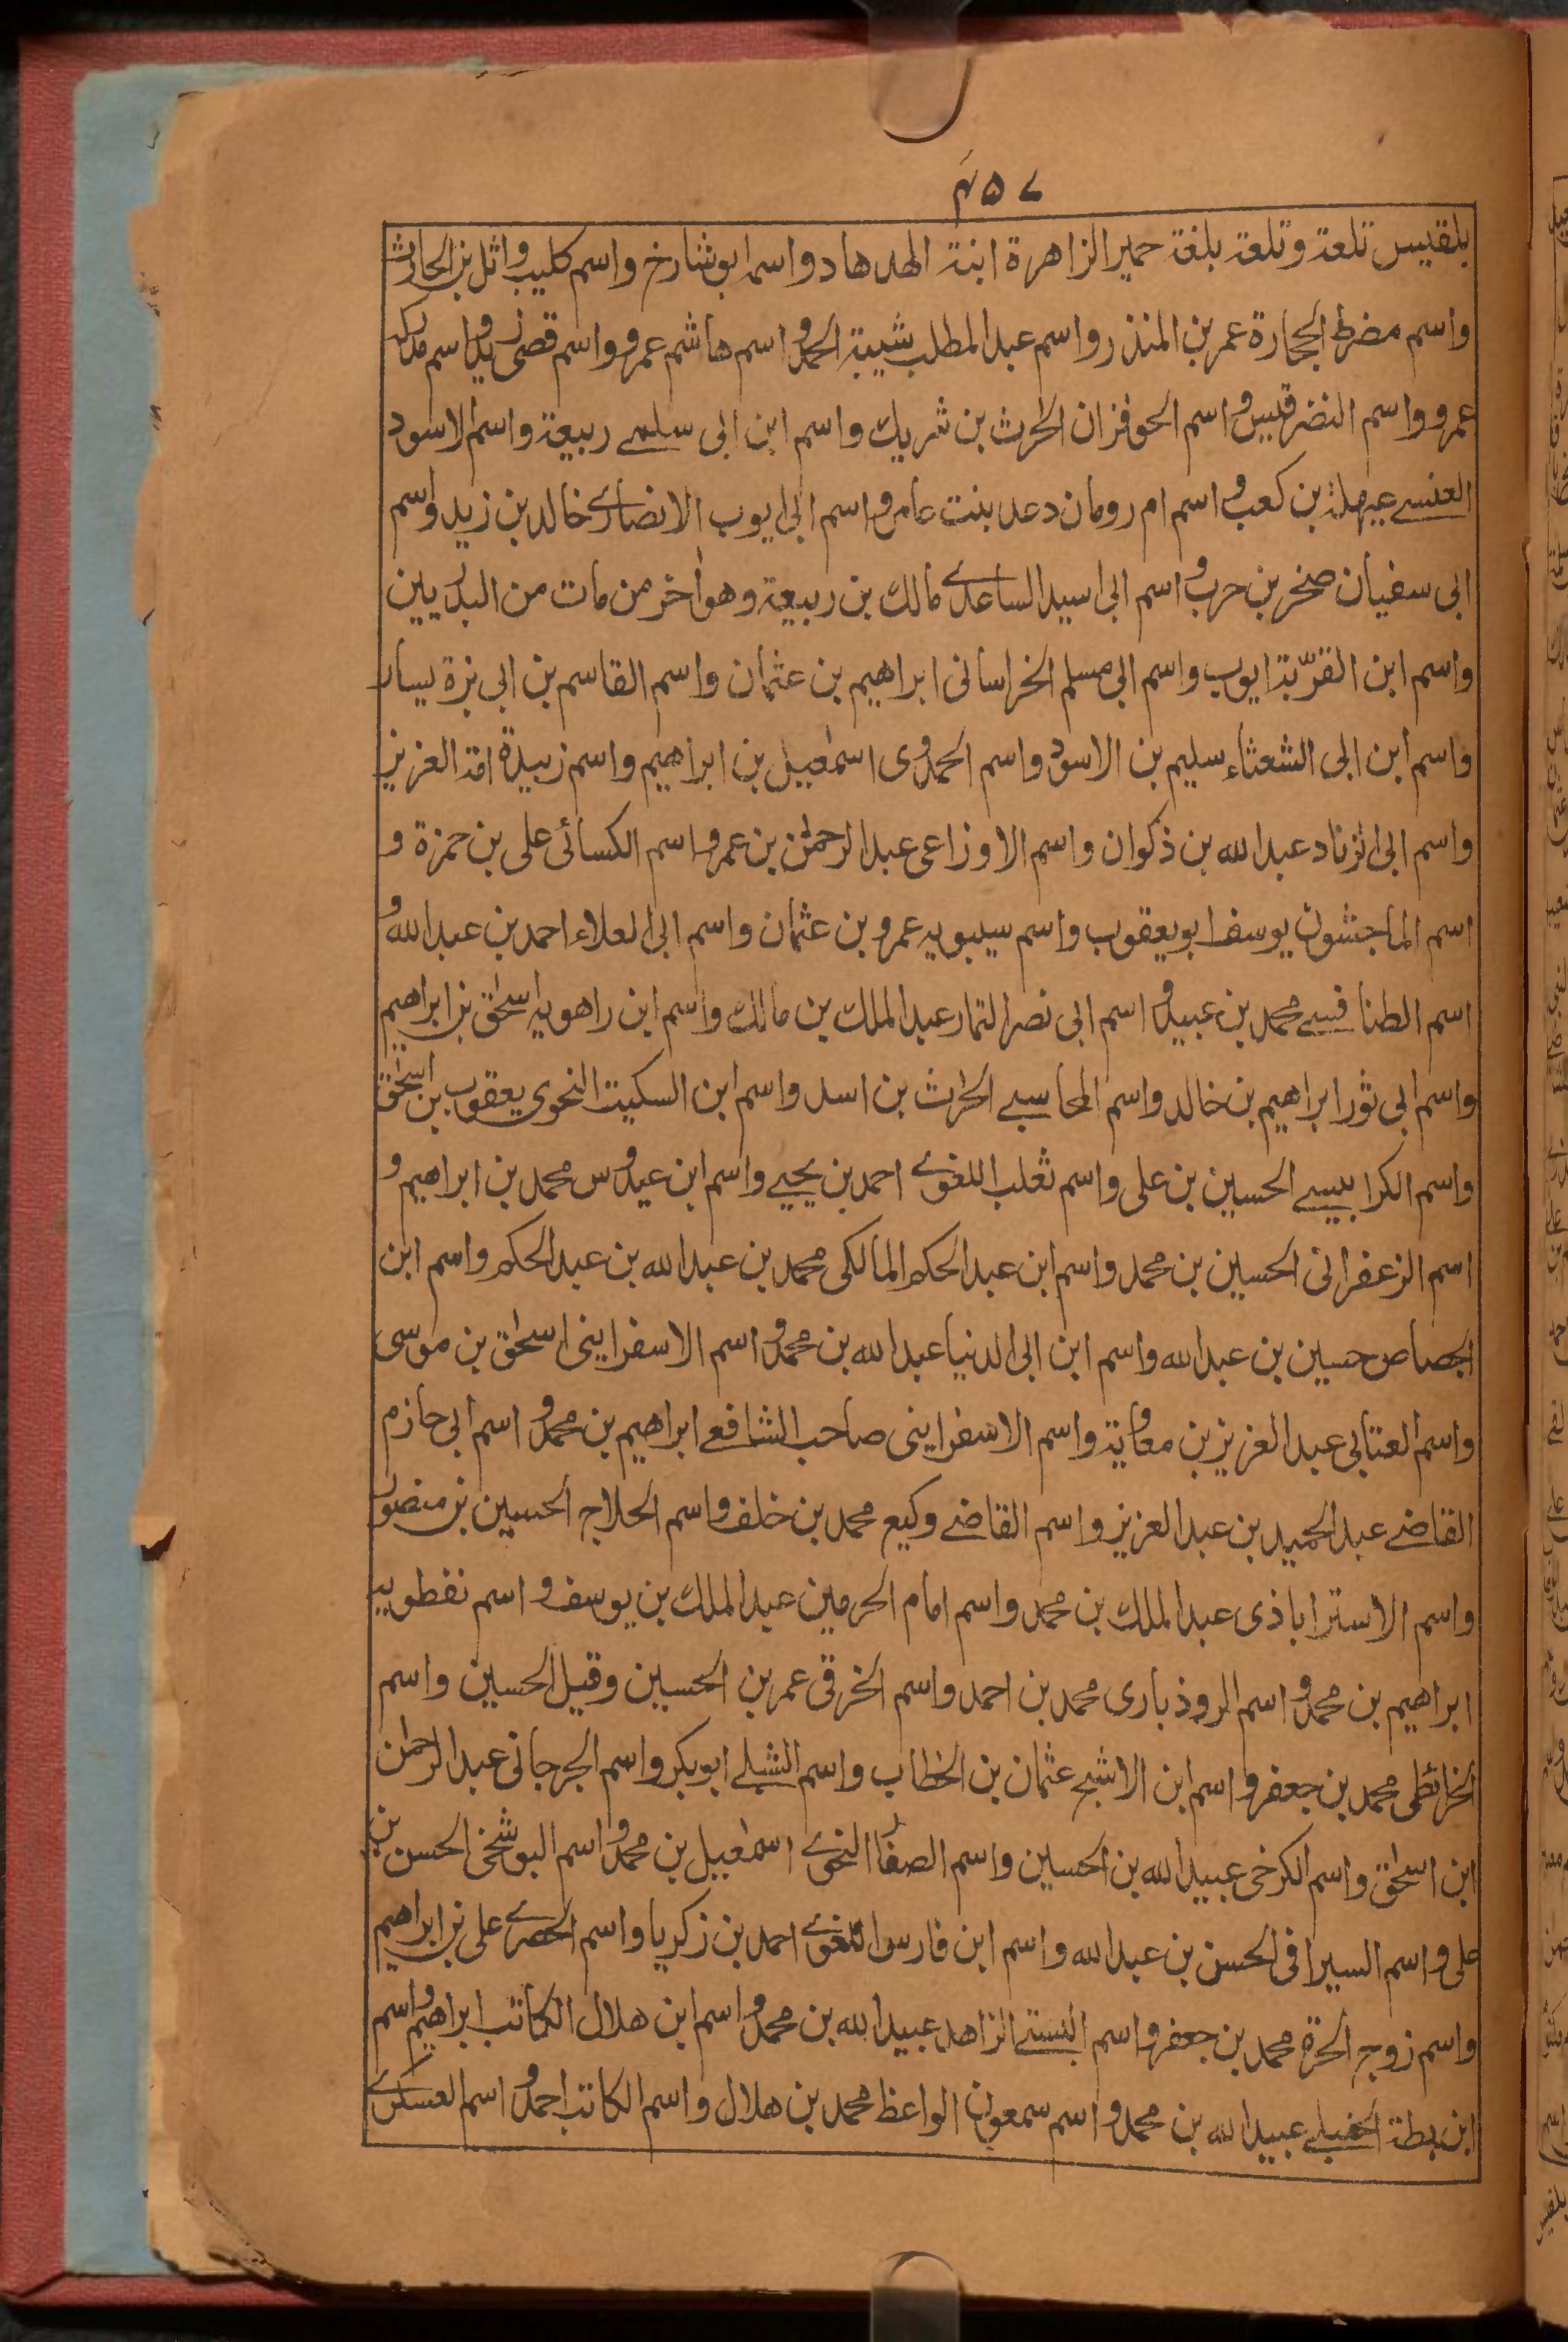 ٤٥٧
بلقيس تلعة وتلعة بلغة حمير الزاهرة ابنة الهدهاد واسم ابو شارخ واسم كليب وائل بن الحارث
واسم مضرط الحجارة عمر بن المنذر واسم عبد المطلب شيبة الحمد و اسم هاشم عمرو واسم قصى زيد و اسم مدركه
عمرو واسم النضر قيس و اسم الحوفزان الحٰرث بن شريك واسم ابن ابى سلمے ربيعة واسم الاسود
العنسے عيهلة بن كعب و اسم ام رومان دعد بنت عامر و اسم ابى ايوب الانصارے خالد بن زيد واسم
ابى سفيان صخر بن حرب و اسم ابى اسيد الساعدے مالك بن ربيعة وهو اٰخر من مات من البدريين
واسم ابن القرّية ايوب واسم ابى مسلم الخراسانى ابراهيم بن عثمان واسم القاسم بن ابى بزة يسار
واسم ابن ابى الشعثاء سليم بن الاسود واسم الحمدوى اسمٰعيل بن ابراهيم واسم زبيدة امة العزيز
واسم ابى الزناد عبد الله بن ذكوان واسم الاوزاعى عبد الرحمٰن بن عمرو اسم الكسائى على بن حمزة و
اسم الماجشون يوسف ابو يعقوب واسم سيبويه عمرو بن عثمان واسم ابى العلاء احمد بن عبد الله و
اسم الطنافسے محمد بن عبيد و اسم ابى نصر التمار عبد الملك بن مالك واسم ابن راهويه اسحٰق بن ابراهيم
واسم ابى ثور ابراهيم بن خالد واسم المحاسبے الحٰرث بن اسد واسم ابن السكيت النحوى يعقوب بن اسحٰق
واسم الكرابيسے الحسين بن على واسم ثعلب اللغوے احمد بن يحيے واسم ابن عبدوس محمد بن ابراهيم و
اسم الزعفرانى الحسين بن محمد واسم ابن عبد الحكم المالكى محمد بن عبد الله بن عبد الحكم واسم ابن
الجصاص حسين بن عبد الله واسم ابن ابى الدنيا عبد الله بن محمد و اسم الاسفراينى اسحٰق بن موسى
واسم العتابى عبد العزيز بن معاوية واسم الاسفراينى صاحب الشافعے ابراهيم بن محمد و اسم ابى حازم
القاضے عبد الحميد بن عبد العزيز واسم القاضے وكيع محمد بن خلف واسم الحلاج الحسين بن منصور
واسم الاستراباذى عبد الملك بن محمد واسم امام الحرمين عبد الملك بن يوسف و اسم نفطويه
ابراهيم بن محمد و اسم الروذبارى محمد بن احمد واسم الخرقى عمر بن الحسين وقيل الحسين واسم
الخرائطى محمد بن جعفر و اسم ابن الاشج عثمان بن الخطاب واسم الشبلے ابو بكر واسم الجرجانى عبد الرحمٰن
ابن اسحٰق واسم الكرخى عبيد الله بن الحسين واسم الصفار النحوے اسمٰعيل بن محمد و اسم البوشخى الحسن بن
على و اسم السيرافى الحسن بن عبد الله واسم ابن فارس اللغوے احمد بن زكريا واسم الحصرے على بن ابراهيم
واسم زوج الحرة محمد بن جعفر و اسم البستے الزاهد عبيد الله بن محمد و اسم ابن هلال الكاتب ابراهيم واسم
ابن بطة الحنبلے عبيد الله بن محمد و اسم سمعون الواعظ محمد بن هلال واسم الكاتب احمد و اسم العسكرے